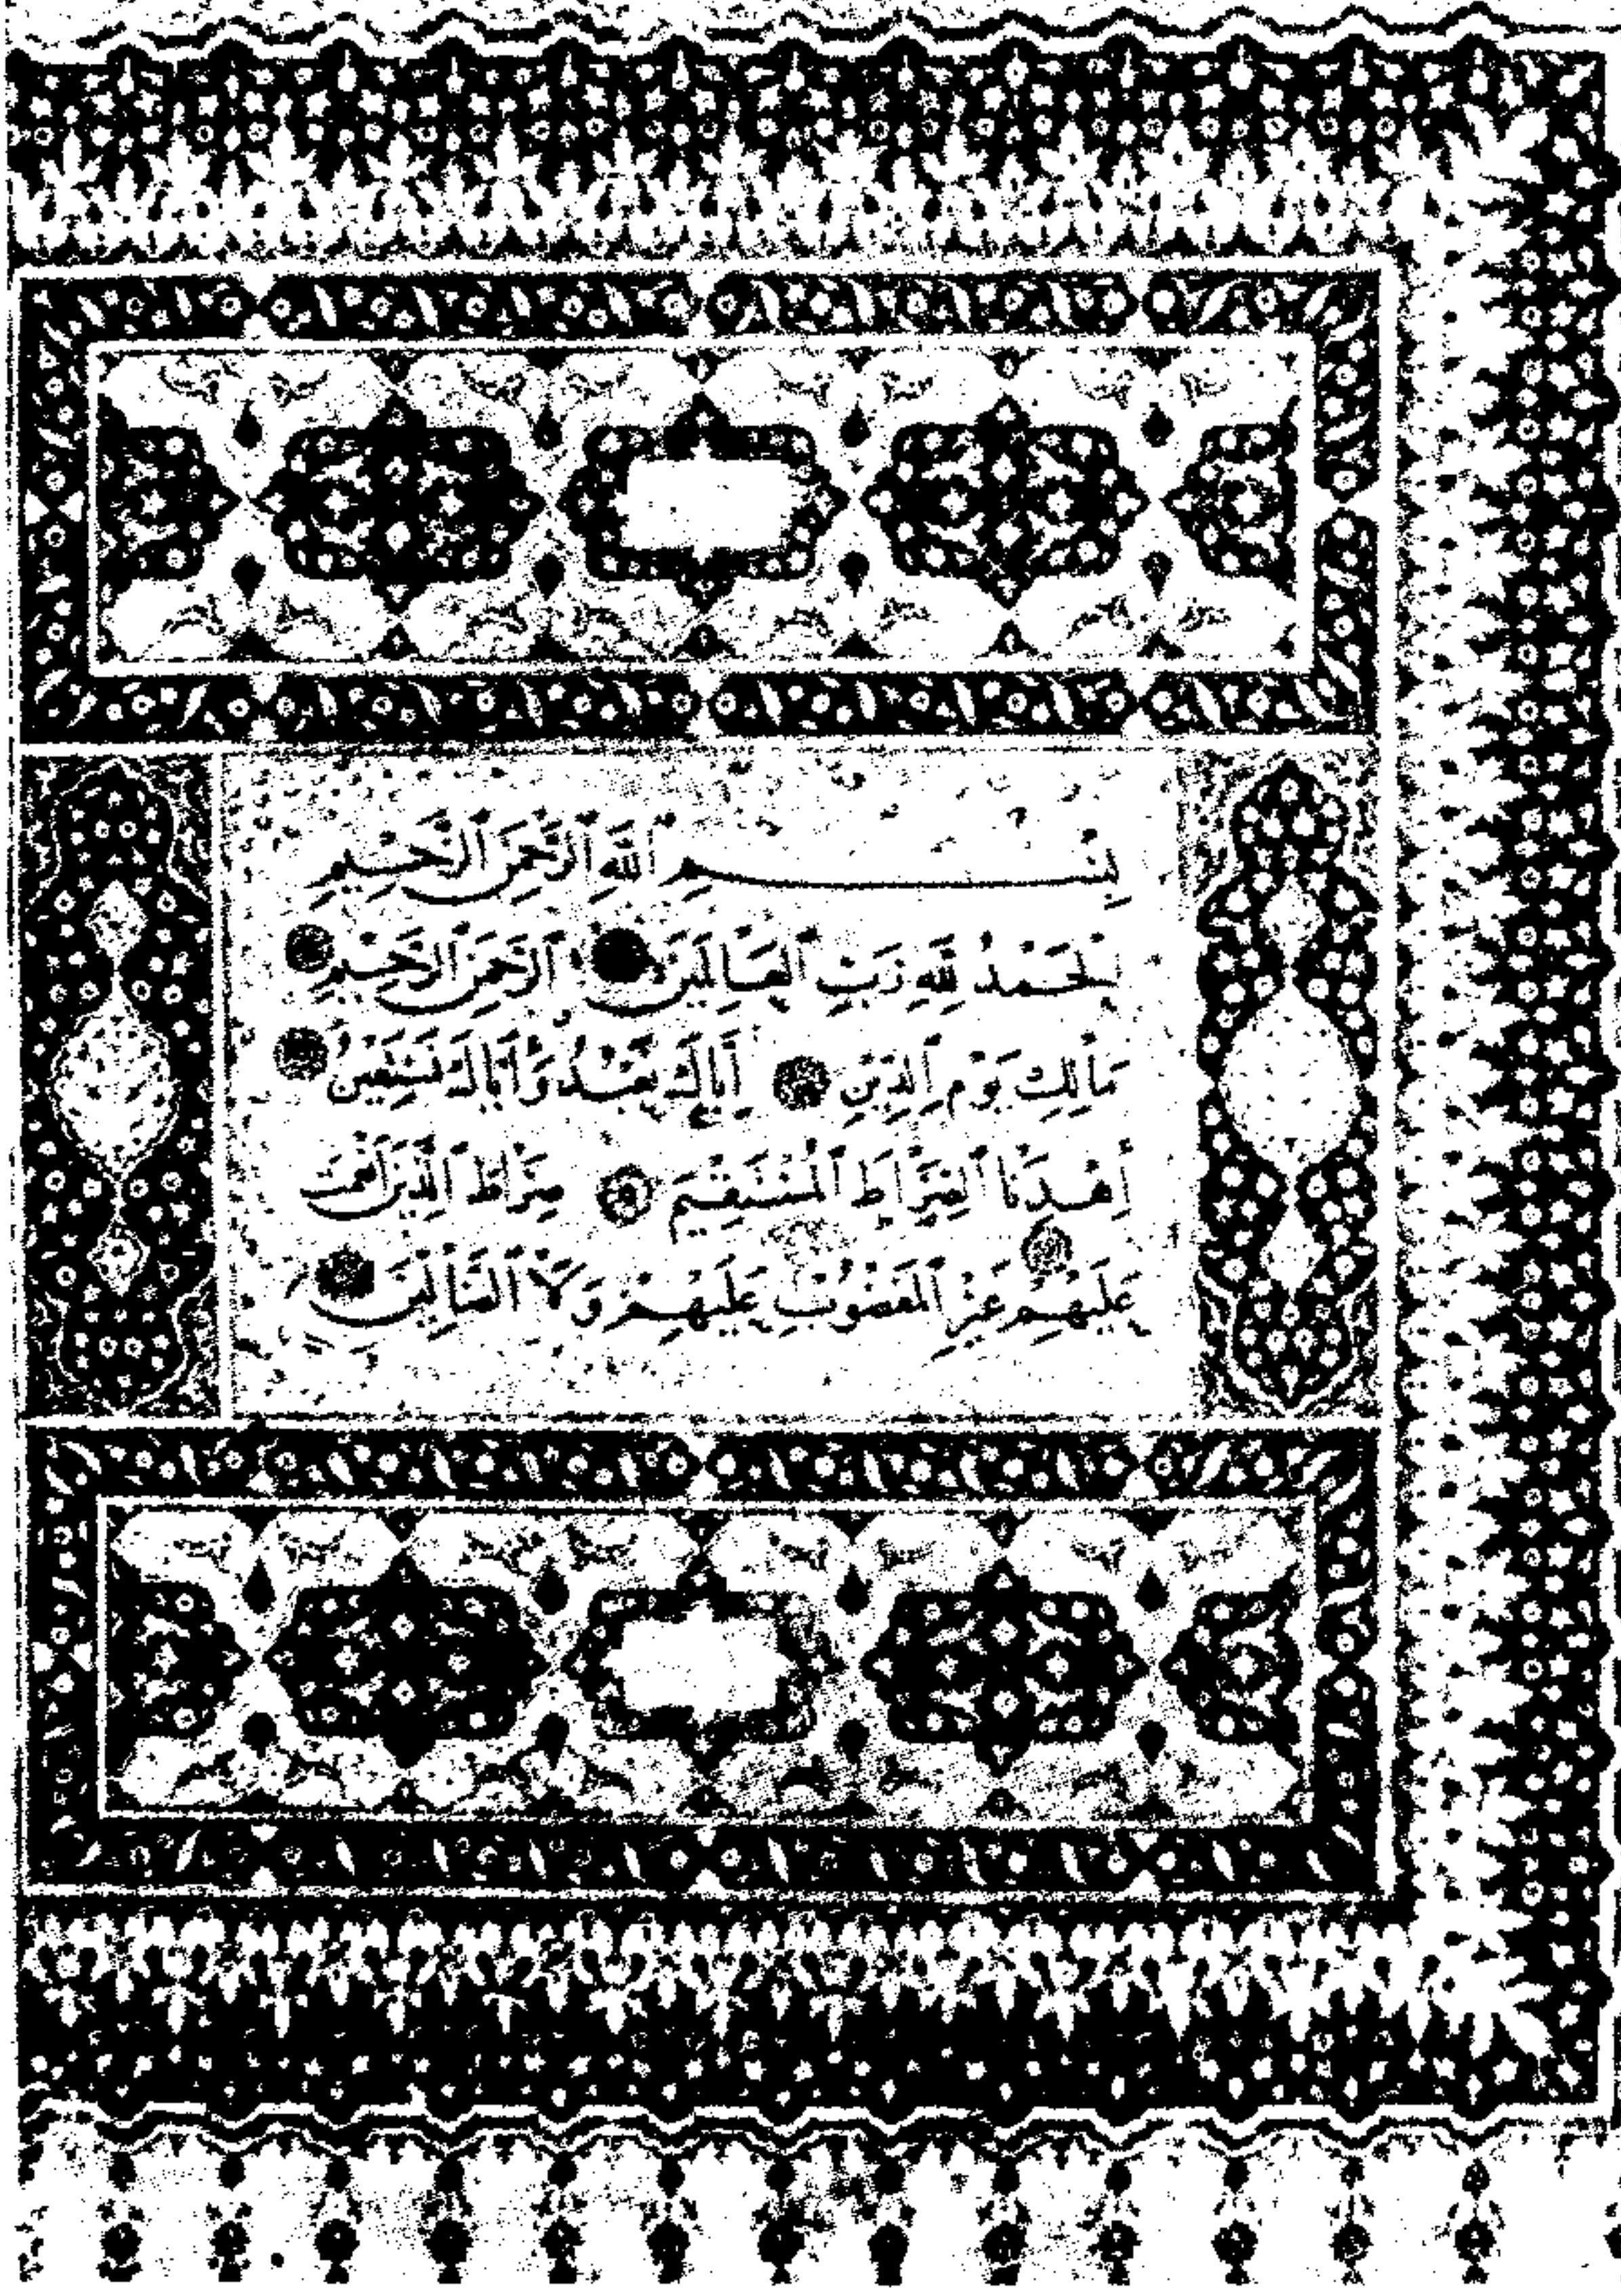 بِسْمِ ٱللَّهِ ٱلرَّحْمَنِ ٱلرَّحِيمِ
ٱلْحَمْدُ لِلَّهِ رَبِّ ٱلْعَالَمِينَ ٱلرَّحْمَنِ ٱلرَّحِيمِ
مَالِكِ يَوْمِ ٱلدِّينِ إِيَّاكَ نَعْبُدُ وَإِيَّاكَ نَسْتَعِينُ
ٱهْدِنَا ٱلصِّرَاطَ ٱلْمُسْتَقِيمَ صِرَاطَ ٱلَّذِينَ أَنْعَمْتَ
عَلَيْهِمْ غَيْرِ ٱلْمَغْضُوبِ عَلَيْهِمْ وَلَا ٱلضَّالِّينَ